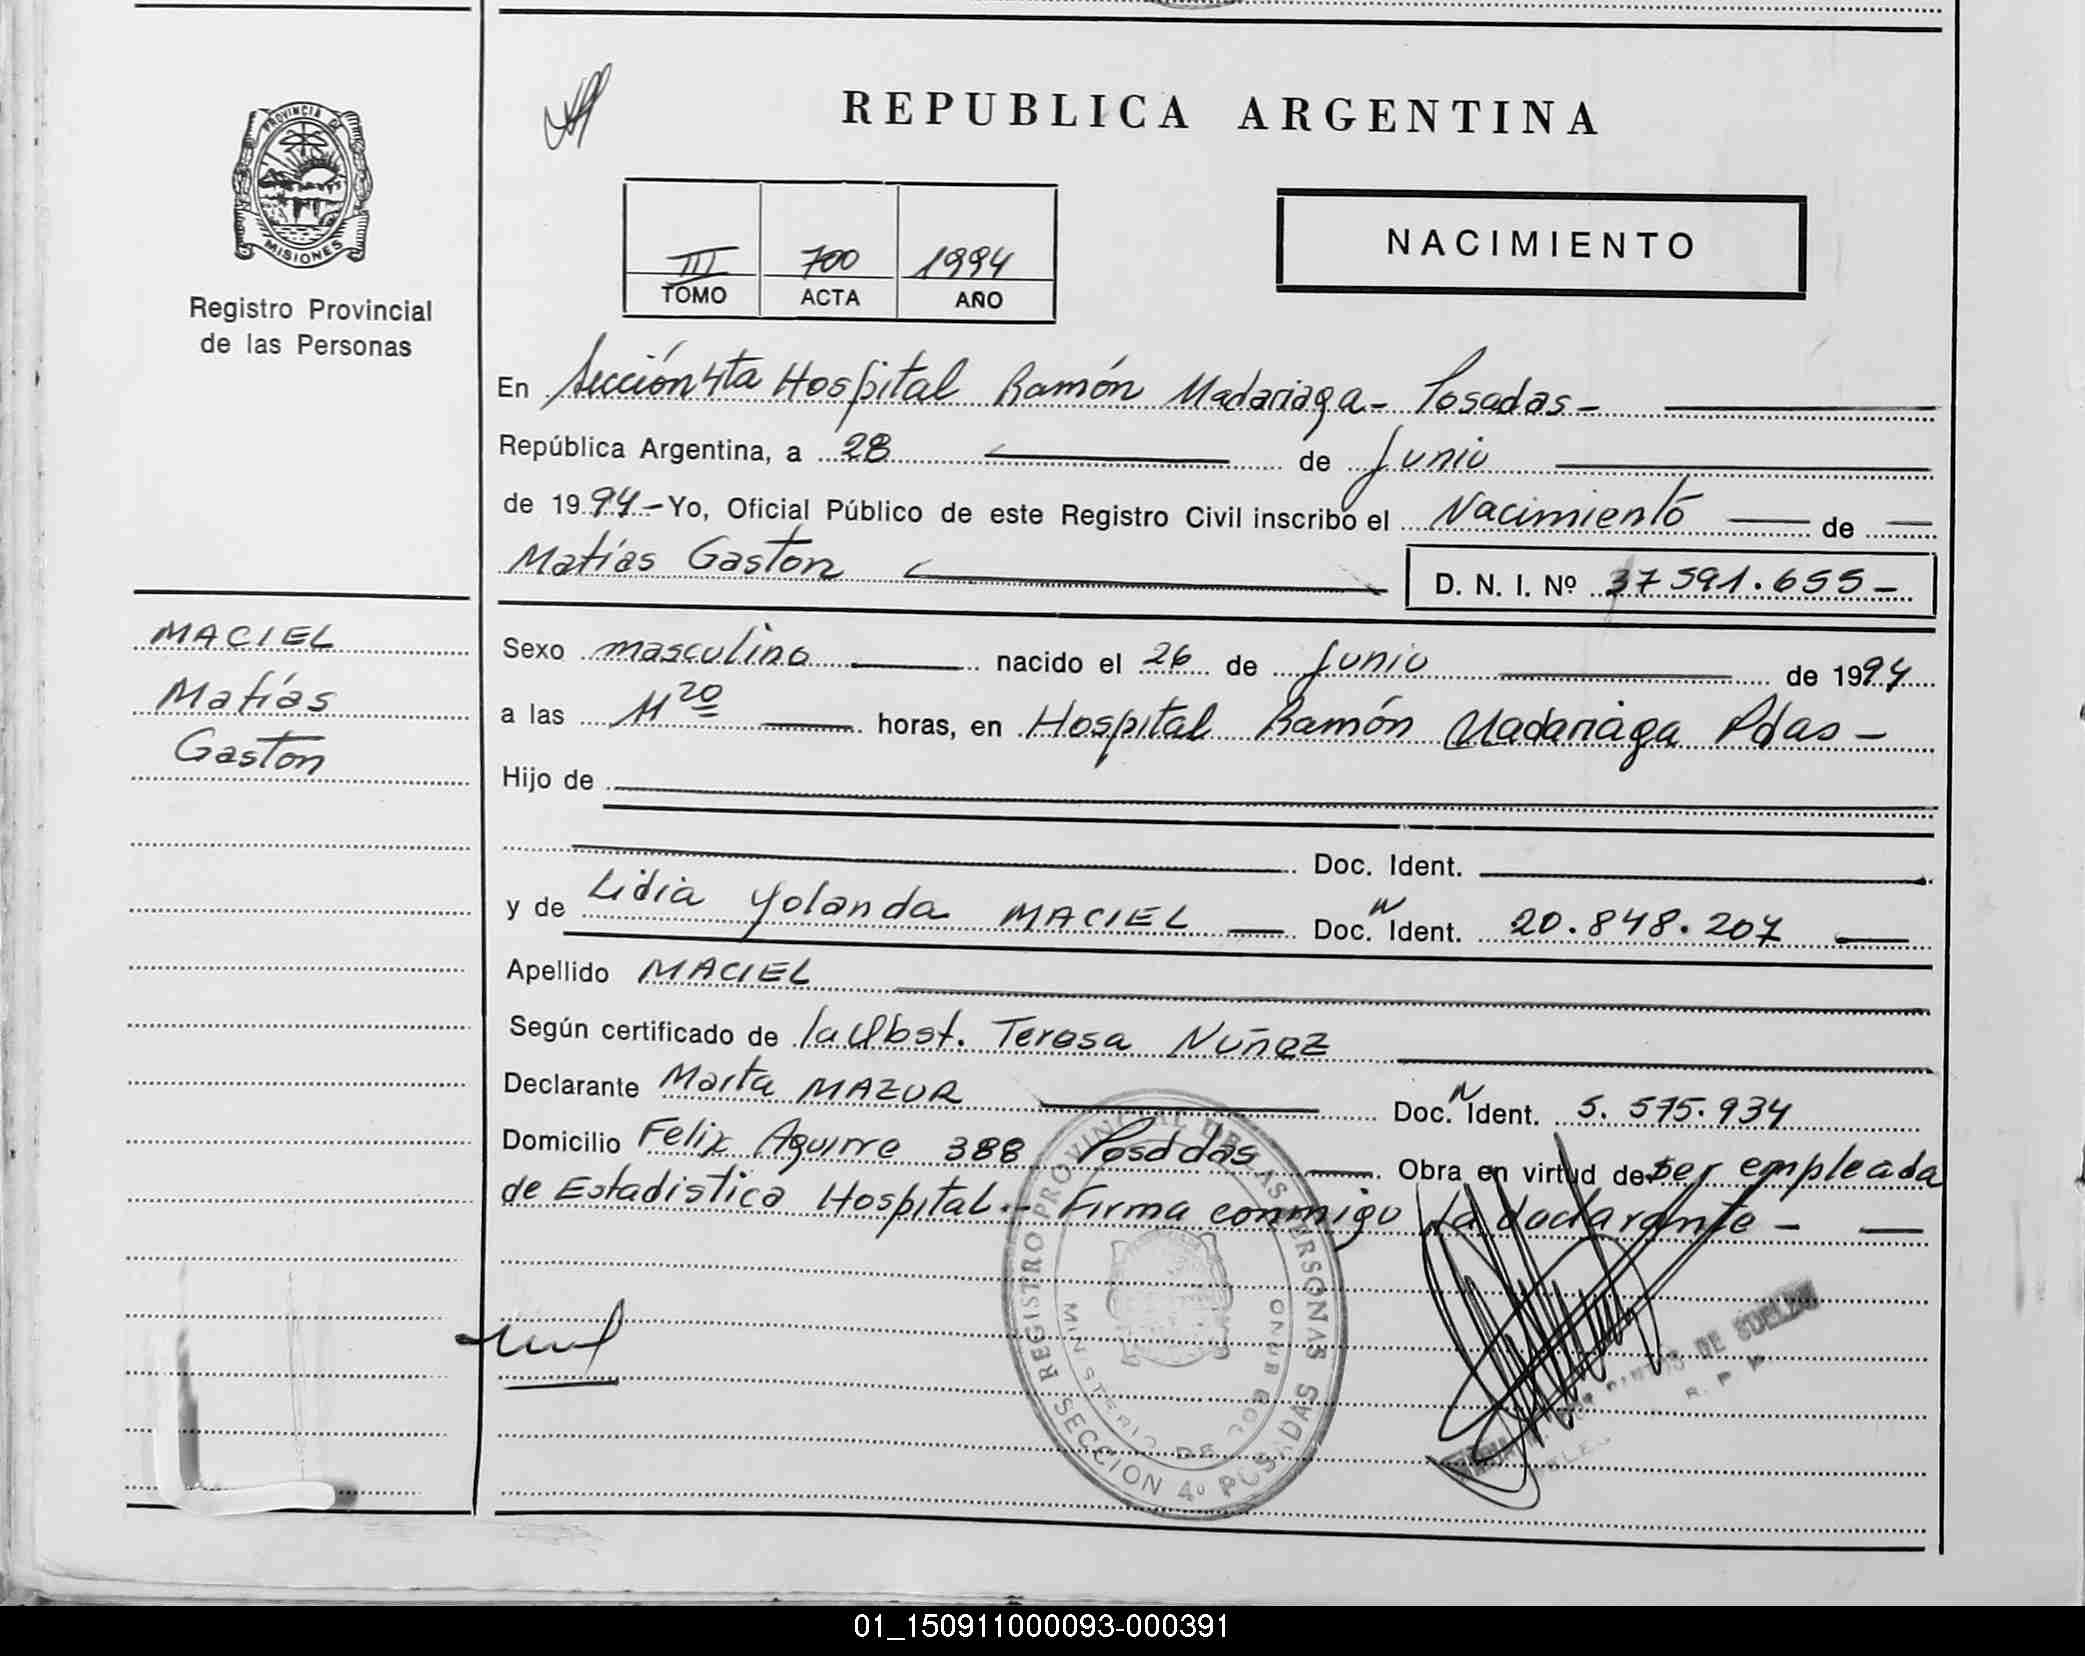 REPUBLICA ARGENTINA
PROVINCIA DE
MISIONES
Registro Provincial
de las Personas
III 700 1994
TOMO ACTA AÑO
NACIMIENTO
En Sección 4ta Hospital Ramón Madariaga - Posadas -
República Argentina, a 28 de Junio
de 1994 - Yo, Oficial Público de este Registro Civil inscribo el Nacimiento de
Matías Gaston D. N. I. Nº 37591.655 -
MACIEL
Matías
Gaston
Sexo masculino nacido el 26 de Junio de 1994
a las 11 20 horas, en Hospital Ramón Madariaga Pdas -
Hijo de
Doc. Ident.
y de Lidia Yolanda MACIEL Doc. N Ident. 20.848.207
Apellido MACIEL
Según certificado de la Obst. Teresa Nuñez
Declarante Marta MAZUR Doc. N Ident. 5.575.934
Domicilio Felix Aguirre 388 Posadas Obra en virtud de ser empleada
de Estadistica Hospital.- Firma conmigo la declarante -
REGISTRO PROVINCIAL DE LAS PERSONAS
MINISTERIO DE GOBIERNO
SECCION 4º POSADAS
DE
R. P.
01_150911000093-000391